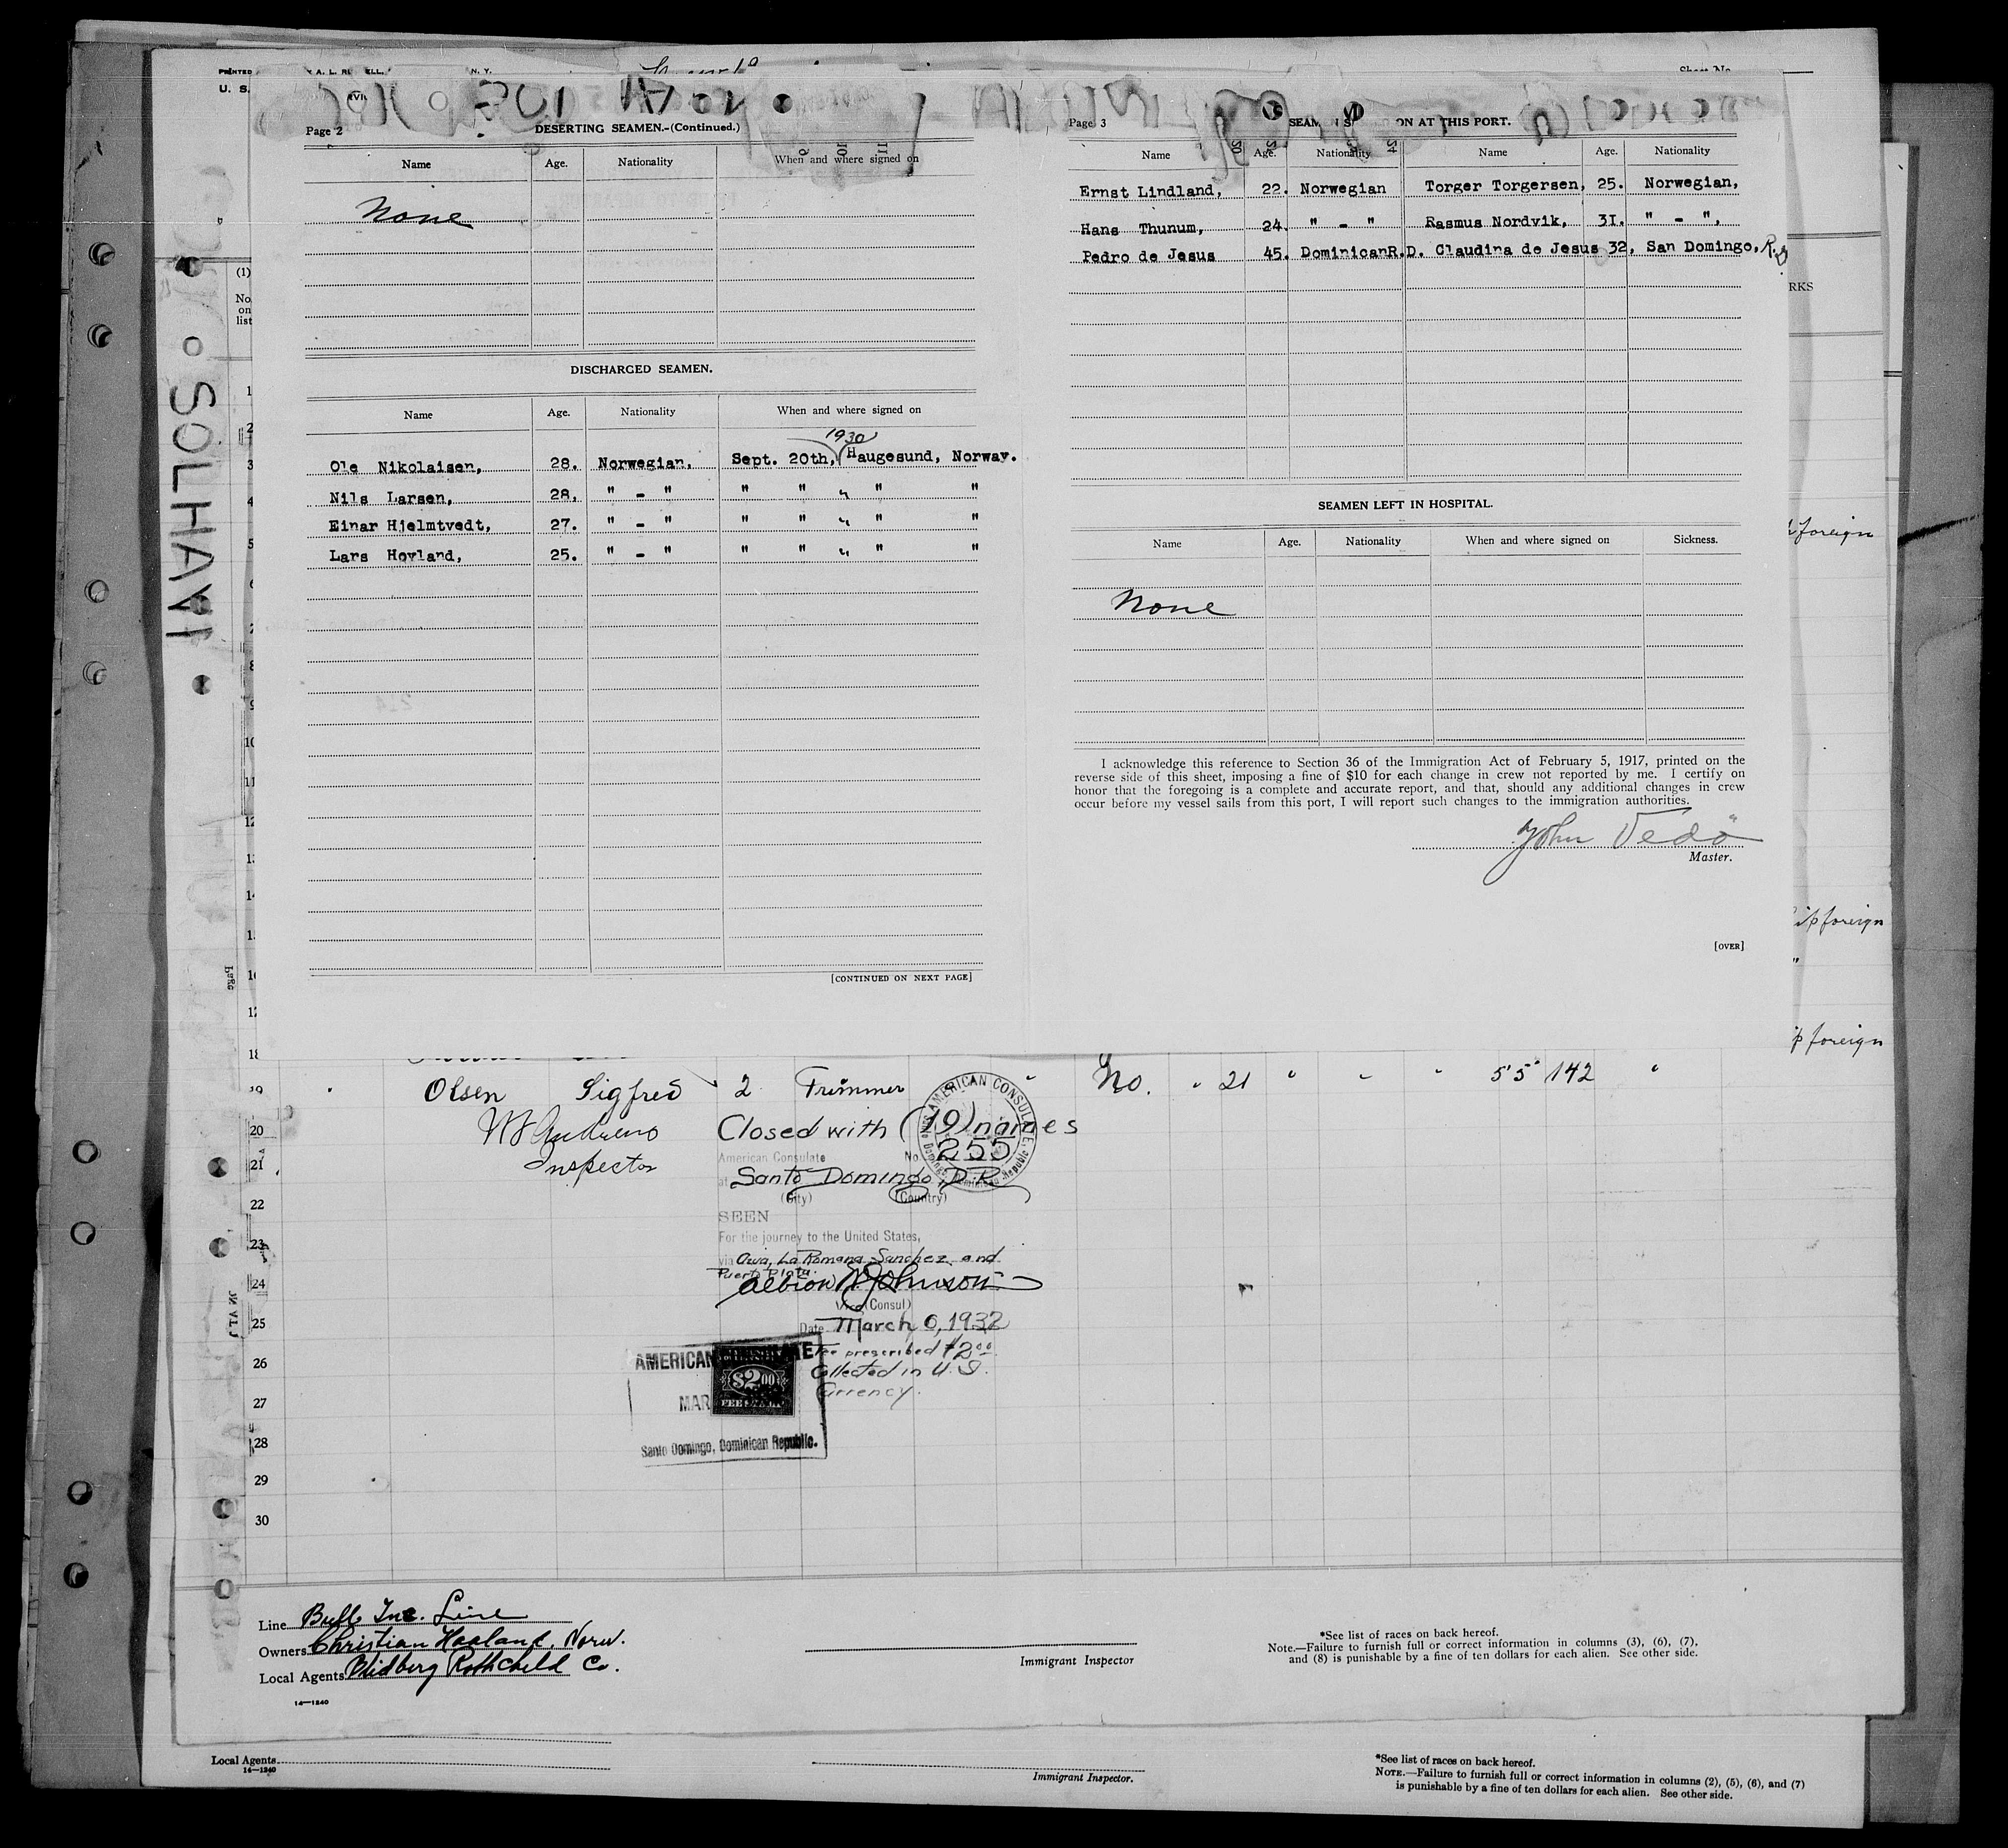 Page 2
DESERTING SEAMEN.-(Continued.)
Name Age. Nationality When and where signed on
None
DISCHARGED SEAMEN.
Name Age. Nationality When and where signed on
1930
Ole Nikolaisen, 28. Norwegian, Sept. 20th, Haugesund, Norway.
Nils Larsen, 28, " - " " " " " "
Einar Hjelmtvedt, 27. " - " " " " " "
Lars Hovland, 25. " - " " " " " "
[CONTINUED ON NEXT PAGE]
Page 3
ON AT THIS PORT.
Name Age. Nationality Name Age. Nationality
Ernst Lindland, 22. Norwegian Torger Torgersen, 25. Norwegian,
Hans Thunum, 24. " - " Rasmus Nordvik, 31. " - ",
Pedro de Jesus 45. DominicanR.D. Claudina de Jesus 32, San Domingo, R.D.
SEAMEN LEFT IN HOSPITAL.
Name Age. Nationality When and where signed on Sickness.
None
I acknowledge this reference to Section 36 of the Immigration Act of February 5, 1917, printed on the
reverse side of this sheet, imposing a fine of $10 for each change in crew not reported by me. I certify on
honor that the foregoing is a complete and accurate report, and that, should any additional changes in crew
occur before my vessel sails from this port, I will report such changes to the immigration authorities.
John Vedö
Master.
[OVER]
SOLHAVN
RKS
foreign
foreign
foreign
(1)
No.
on
list
1
2
3
4
5
6
7
8
9
10
11
12
13
14
15
16
17
18
19 " Olsen Sigfred 2 Trimmer " No. " 21 " " " 5'5" 142 "
20 Closed with (19) names
Inspector
AMERICAN CONSULATE
American Consulate No. 255
21 at Santo Domingo, D.R.
(City) (Country)
22 SEEN
23 For the journey to the United States,
via Azua, La Romana, Sanchez, and
Puerto Plata.
24 Albion W. Johnson
Vice (Consul)
25 Date March 6, 1932
Fee prescribed $2.00
26 Collected in U.S.
27 Currency.
28
29
30
AMERICAN
$2.00
MAR
Santo Domingo, Dominican Republic.
Line Bull Inc. Line
Owners Christian Haaland, Norw.
Local Agents Blidberg Rothchild Co.
14—1240
Immigrant Inspector
*See list of races on back hereof.
Note.—Failure to furnish full or correct information in columns (3), (6), (7),
and (8) is punishable by a fine of ten dollars for each alien. See other side.
Local Agents
14—1240
Immigrant Inspector.
*See list of races on back hereof.
NOTE.—Failure to furnish full or correct information in columns (2), (5), (6), and (7)
is punishable by a fine of ten dollars for each alien. See other side.